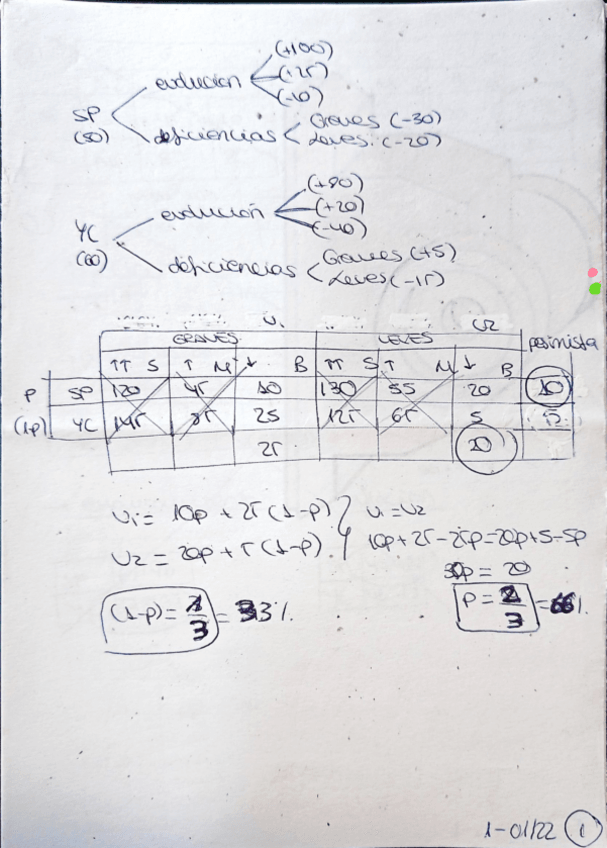 (+100)
evolución (+25)
(-10)
SP
(50) deficiencias Graves (-30)
Leves (-20)
(+80)
evolución (+20)
(-40)
YC
(60) deficiencias Graves (+5)
Leves (-15)
U1 U2
GRAVES LEVES pesimista
↑↑ S ↑ M ↓ B ↑↑ S ↑ M ↓ B
P SP 120 45 10 130 55 20 10
(1-p) YC 145 85 25 125 65 5 5
25 20
U1 = 10p + 25(1-p) U1 = U2
U2 = 20p + 5(1-p) 10p + 25 - 25p = 20p + 5 - 5p
30p = 20
(1-p) = 1/3 = 33% p = 2/3 = 66%
1-01/22 1